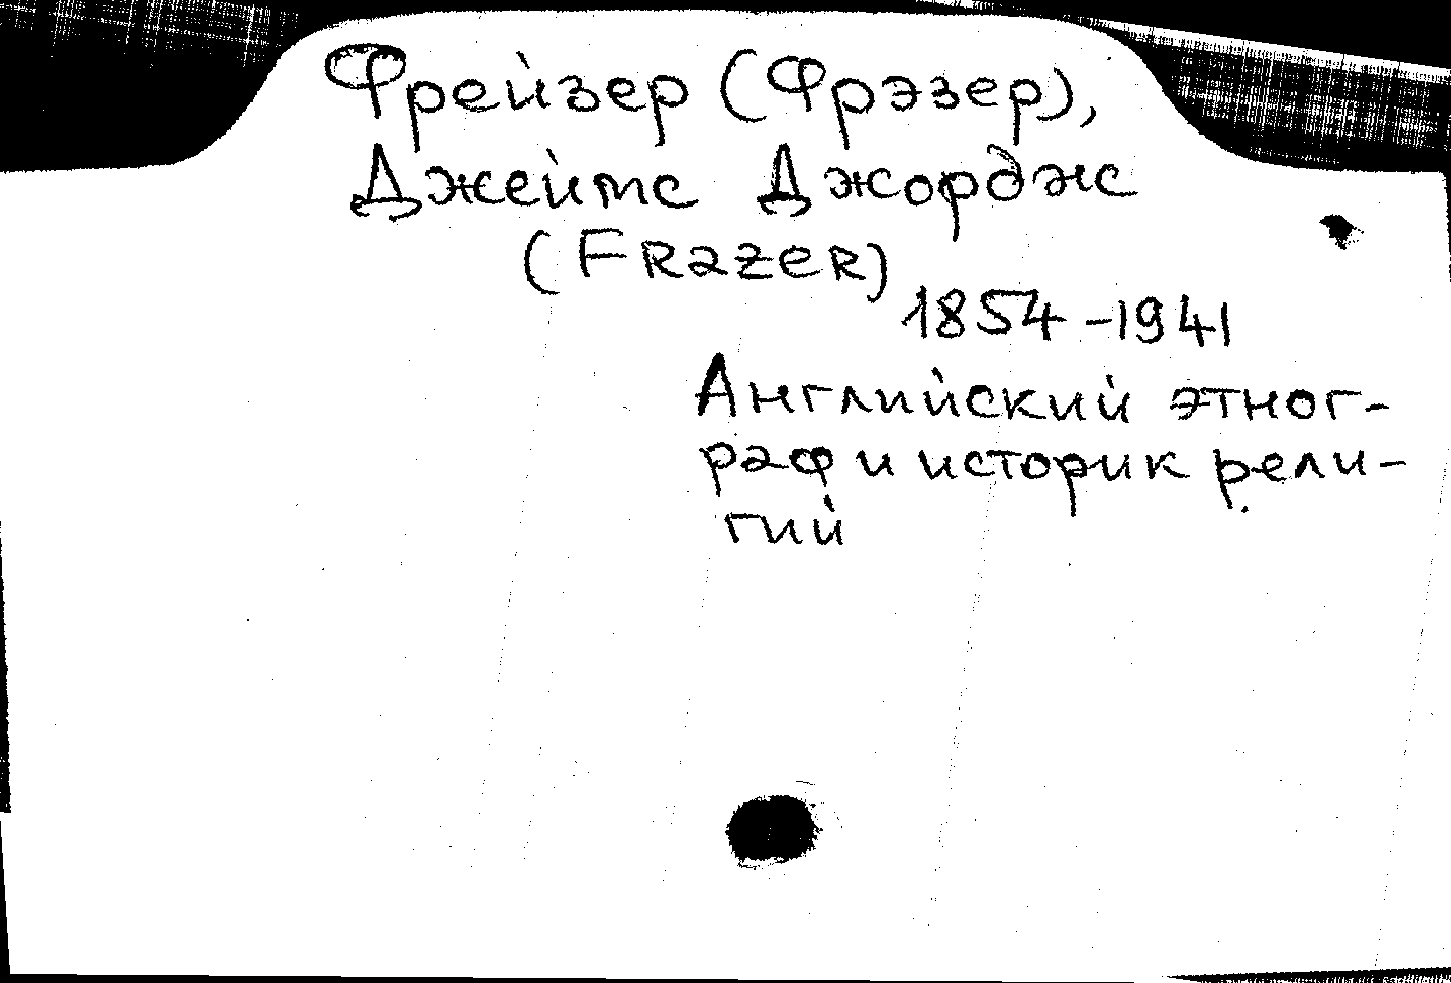 Фрейзер (Фрэзер),
Джеймс Джордж
(FRazeR)
1854-1941
Английский этног-
раф и историк рели-
гий